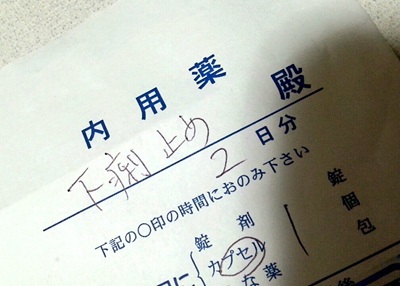 内用薬
下痢止め 殿
2日分
下記の〇印の時間におのみ下さい
錠剤
カプセル
な薬
錠
個
包